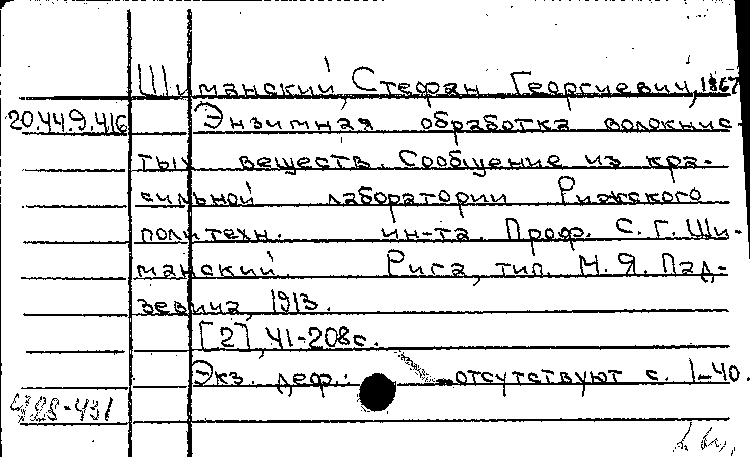 Шиманский, Стефан Георгиевич, 1867
20.44.9.416 Энзимная обработка волокнис-
тых веществ. Сообщение из кра-
сильной лаборатории Рижского
политехн. ин-та. Проф. С. Г. Ши-
манский. Рига, тип. М. Я. Пад-
зевича, 1913.
[2], 41-208 с.
Экз. деф.: отсутствуют с. 1-40.
428-431